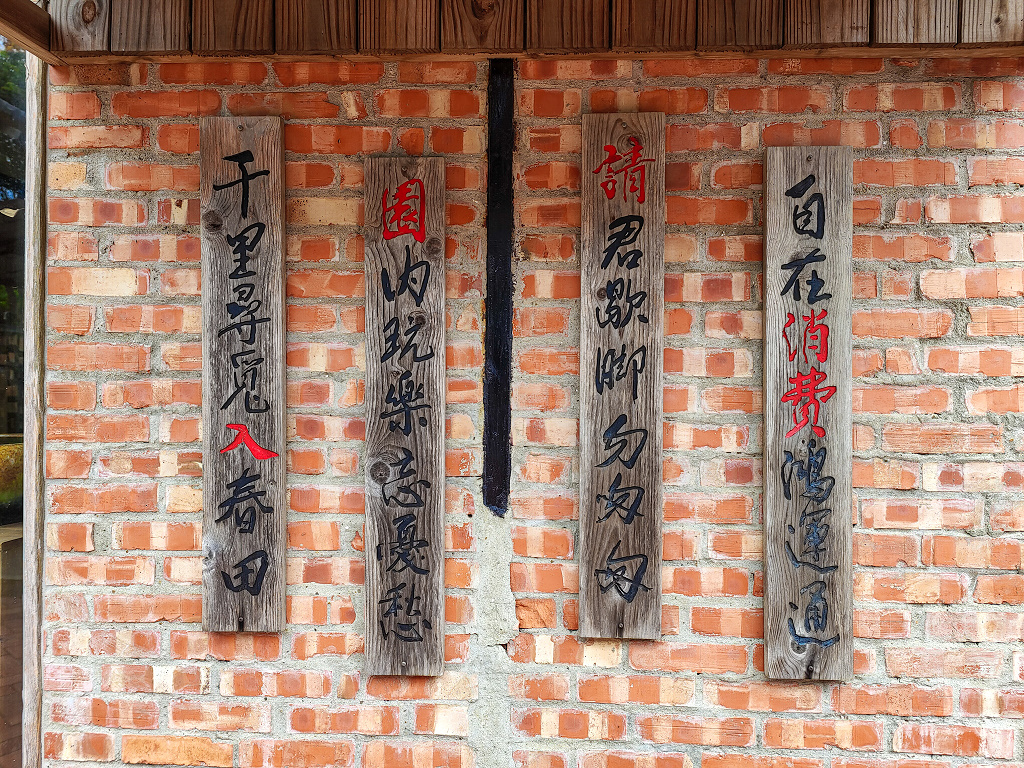 千里尋覓入春田
園內玩樂忘憂愁
請君歇脚勿匆匆
自在消費鴻運通